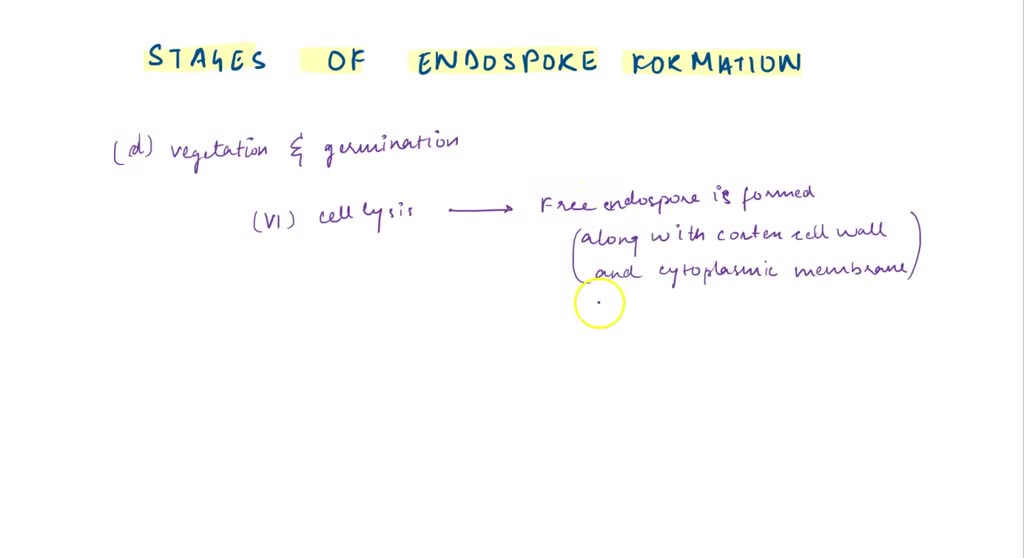 STAGES OF ENDOSPORE FORMATION
(d) vegetation & germination
(VI) cell lysis → Free endospore is formed
(along with cortex cell wall
and cytoplasmic membrane)